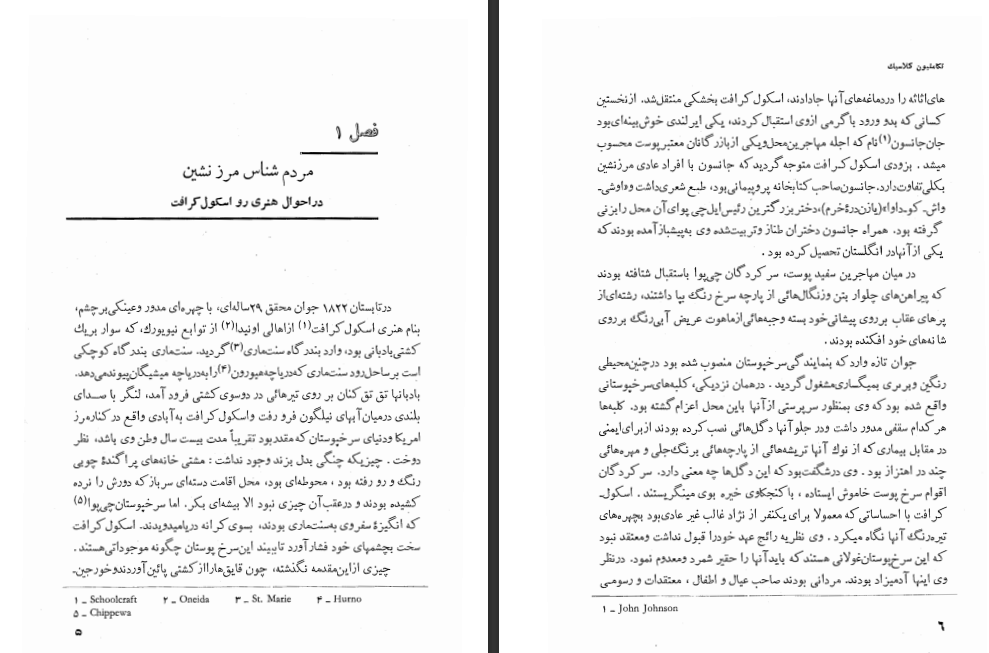 فصل ۱
مردم شناس مرز نشین
در احوال هنری رو اسکول کرافت
درتابستان ۱۸۲۲ جوان محقق ۲۹ساله‌ای، با چهره‌ای مدور وعینکی‌برچشم،
بنام هنری اسکول کرافت(۱) ازاهالی اونیدا(۲) از توابع نیویورك، که سوار بريك
کشتی‌بادبانی بود، وارد بندر گاه سنت‌ماری(۳) گردید. سنت‌ماری بندر گاه کوچکی
است برساحل‌رود سنت‌ماری که‌دریاچه‌هیورون(۴)رابه‌دریاچه میشیگان‌پیوندمی‌دهد.
بادبانها تق تق کنان بر روی تیرهائی در دوسوی کشتی فرود آمد، لنگر با صدای
بلندی درمیان آبهای نیلگون فرو رفت واسکول کرافت به‌آبادی واقع در کناره‌مرز
امریکا ودنیای سرخپوستان که‌مقدر‌بود تقریباً مدت بیست سال وطن وی باشد، نظر
دوخت . چیزیکه چنگی بدل بزند وجود نداشت : مشتی خانه‌های پراگندهٔ چوبی
رنگ و رو رفته بود ، محوطه‌ای بود، محل اقامت دسته‌ای سرباز که دورش را نرده
کشیده بودند و درعقب‌آن چیزی نبود الا بیشه‌ای بکر. اما سرخپوستان‌چی‌پوا(۵)
که انگیزهٔ سفروی به‌سنت‌ماری بودند، بسوی کرانه درپامیدویدند. اسکول کرافت
سخت بچشمهای خود فشار آورد تا ببیند این‌سرخ پوستان چگونه موجوداتی‌هستند.
چیزی ازاین‌مقدمه نگذشته، چون قایق‌هارااز‌کشتی پائین‌آوردندوخورجین-
۱ ـ Schoolcraft ۲ ـ Oneida ۳ ـ St. Marie ۴ ـ Hurno
۵ ـ Chippewa
۵
تکاملیون کلاسيك
های‌اثاثه را دردماغه‌های‌آنها جادادند، اسکول کرافت بخشکی منتقل‌شد. ازنخستین
کسانی‌که بدو ورود با‌گرمی ازوی استقبال کردند، یکی ایرلندی خوش‌بینه‌ای‌بود
جان‌جانسون(۱)نام که اجله مهاجرین‌محل‌ویکی ازبازرگانان معتبرپوست محسوب
میشد . بزودی اسکول کرافت متوجه گردید که جانسون با افراد عادی مرزنشین
بکلی‌تفاوت‌دارد.جانسون‌صاحب کتابخانه پروپیمانی‌بود، طبع شعری‌داشت و«اوشی-
واش- کو-داوا»(یازن‌درهٔ‌خرم)،دختربزرگترین رئیس‌ایل‌چی پوای‌آن محل رابزنی
گرفته بود. همراه جانسون دختران طناز وتربیت‌شده وی به‌پیشباز‌آمده بودندکه
یکی ازآنهادر انگلستان تحصیل کرده بود .
در میان مهاجرین سفید پوست، سرکردگان چی‌پوا باستقبال شتافته بودند
که پیراهن‌های چلوار بتن وزنگال‌هائی از پارچه سرخ رنگ بپا داشتند، رشته‌ای‌از
پرهای عقاب برروی پیشانی‌خود بسته وجبه‌هائی ازماهوت عریض آبی‌رنگ برروی
شانه‌های خود افکنده بودند.
جوان تازه وارد که بنمایندگی‌سرخپوستان منصوب شده بود درچنین‌محیطی
رنگین وبربری بمیگساری‌مشغول گردید . درهمان نزدیکی، کلبه‌های‌سرخپوستانی
واقع شده بود که وی بمنظور سرپرستی ازآنها باین محل اعزام گشته بود. کلبه‌ها
هرکدام سقفی مدور داشت ودر جلو آنها دگل‌هائی نصب کرده بودند ازبرای‌ایمنی
در مقابل بیماری که از نوك آنها تریشه‌هائی از پارچه‌هائی برنگ‌جلی و مهره‌هائی
چند در اهتزاز بود . وی درشگفت‌بود که این دگل‌ها چه معنی دارد. سرکردگان
اقوام سرخ پوست خاموش ایستاده ، با‌کنجکاوی خیره بوی مینگریستند . اسکول-
کرافت با احساساتی که معمولا برای یکنفر از نژاد غالب غیر عادی‌بود بچهره‌های
تیره‌رنگ آنها نگاه میکرد . وی نظریه رائج عهد خودرا قبول نداشت ومعتقد نبود
که این سرخ‌پوستان‌غولانی هستند که بایدآنها را حقیر شمرد ومعدوم نمود. درنظر
وی اینها آدمیزاد بودند. مردانی بودند صاحب عیال و اطفال ، معتقدات و رسومی
۱ ـ John Johnson
۶